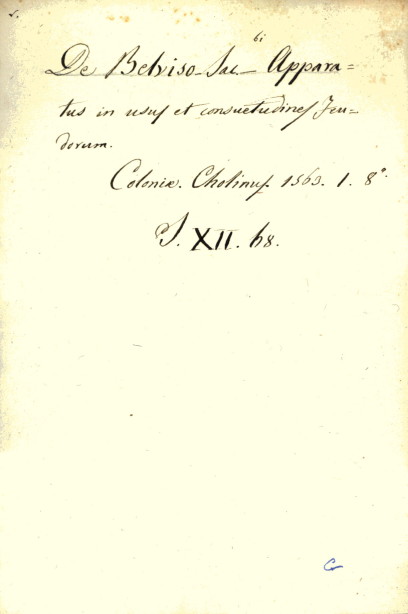 De Belviso Jac. bi Appara=
tus in usus et consuetudines Feu=
dorum.
Coloniæ. Cholinus. 1563. 1. 8°.
J. XII. 68.